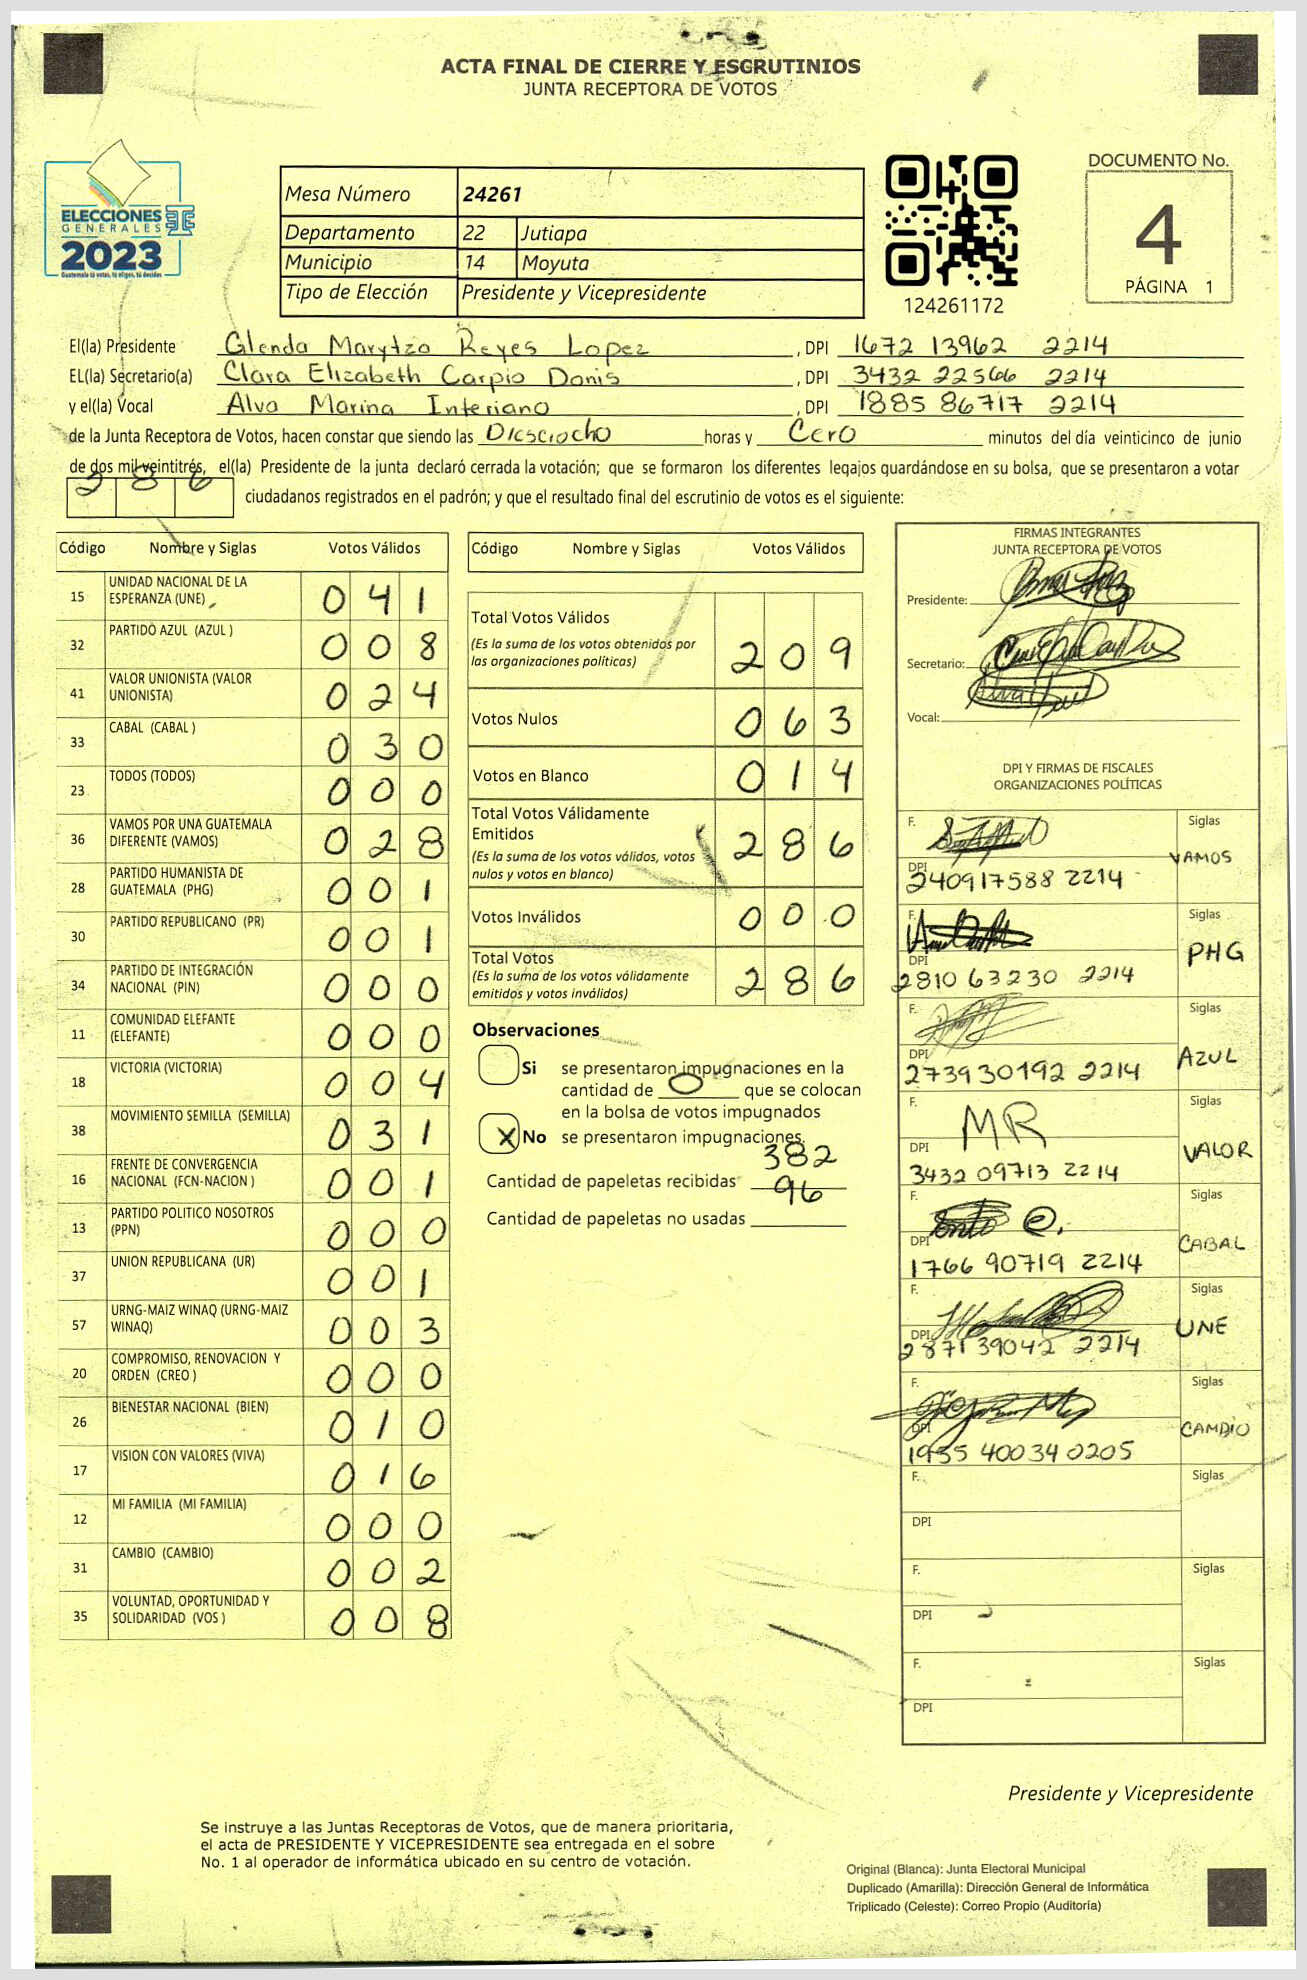 ACTA FINAL DE CIERRE Y ESCRUTINIOS
JUNTA RECEPTORA DE VOTOS
ELECCIONES
GENERALES
2023
Guatemala tú votas, tú eliges, tú decides
Mesa Número 24261
Departamento 22 Jutiapa
Municipio 14 Moyuta
Tipo de Elección Presidente y Vicepresidente
124261172
DOCUMENTO No.
4
PÁGINA 1
El(la) Presidente Glenda Marytza Reyes Lopez, DPI 1672 13962 2214
EL(la) Secretario(a) Clara Elizabeth Carpio Donis, DPI 3432 22566 2214
y el(la) Vocal Alva Marina Interiano, DPI 1885 86717 2214
de la Junta Receptora de Votos, hacen constar que siendo las Diesciocho horas y Cero minutos del día veinticinco de junio
de dos mil veintitrés, el(la) Presidente de la junta declaró cerrada la votación; que se formaron los diferentes legajos guardándose en su bolsa, que se presentaron a votar
286 ciudadanos registrados en el padrón; y que el resultado final del escrutinio de votos es el siguiente:
Código Nombre y Siglas Votos Válidos
15 UNIDAD NACIONAL DE LA ESPERANZA (UNE) 041
32 PARTIDO AZUL (AZUL ) 008
41 VALOR UNIONISTA (VALOR UNIONISTA) 024
33 CABAL (CABAL ) 030
23 TODOS (TODOS) 000
36 VAMOS POR UNA GUATEMALA DIFERENTE (VAMOS) 028
28 PARTIDO HUMANISTA DE GUATEMALA (PHG) 001
30 PARTIDO REPUBLICANO (PR) 001
34 PARTIDO DE INTEGRACIÓN NACIONAL (PIN) 000
11 COMUNIDAD ELEFANTE (ELEFANTE) 000
18 VICTORIA (VICTORIA) 004
38 MOVIMIENTO SEMILLA (SEMILLA) 031
16 FRENTE DE CONVERGENCIA NACIONAL (FCN-NACION ) 001
13 PARTIDO POLITICO NOSOTROS (PPN) 000
37 UNION REPUBLICANA (UR) 001
57 URNG-MAIZ WINAQ (URNG-MAIZ WINAQ) 003
20 COMPROMISO, RENOVACION Y ORDEN (CREO ) 000
26 BIENESTAR NACIONAL (BIEN) 010
17 VISION CON VALORES (VIVA) 016
12 MI FAMILIA (MI FAMILIA) 000
31 CAMBIO (CAMBIO) 002
35 VOLUNTAD, OPORTUNIDAD Y SOLIDARIDAD (VOS ) 008
Código Nombre y Siglas Votos Válidos
Total Votos Válidos 209
(Es la suma de los votos obtenidos por las organizaciones políticas)
Votos Nulos 063
Votos en Blanco 014
Total Votos Válidamente Emitidos 286
(Es la suma de los votos válidos, votos nulos y votos en blanco)
Votos Inválidos 000
Total Votos 286
(Es la suma de los votos válidamente emitidos y votos inválidos)
Observaciones
Si se presentaron impugnaciones en la
cantidad de 0 que se colocan
en la bolsa de votos impugnados
X No se presentaron impugnaciones.
Cantidad de papeletas recibidas 382
Cantidad de papeletas no usadas 96
FIRMAS INTEGRANTES
JUNTA RECEPTORA DE VOTOS
Presidente:
Secretario:
Vocal:
DPI Y FIRMAS DE FISCALES
ORGANIZACIONES POLÍTICAS
F. Siglas
DPI 240917588 2214 VAMOS
F. Siglas
DPI 2810 63230 2214 PHG
F. Siglas
DPI 273930192 2214 AZUL
F. MR Siglas
DPI 3432 09713 2214 VALOR
F. Siglas
DPI 1766 90719 2214 CABAL
F. Siglas
DPI 2871 39042 2214 UNE
F. Siglas
DPI 1955 40034 0205 CAMDIO
F. Siglas
DPI
F. Siglas
DPI
F. Siglas
DPI
Presidente y Vicepresidente
Se instruye a las Juntas Receptoras de Votos, que de manera prioritaria,
el acta de PRESIDENTE Y VICEPRESIDENTE sea entregada en el sobre
No. 1 al operador de informática ubicado en su centro de votación.
Original (Blanca): Junta Electoral Municipal
Duplicado (Amarilla): Dirección General de Informática
Triplicado (Celeste): Correo Propio (Auditoría)